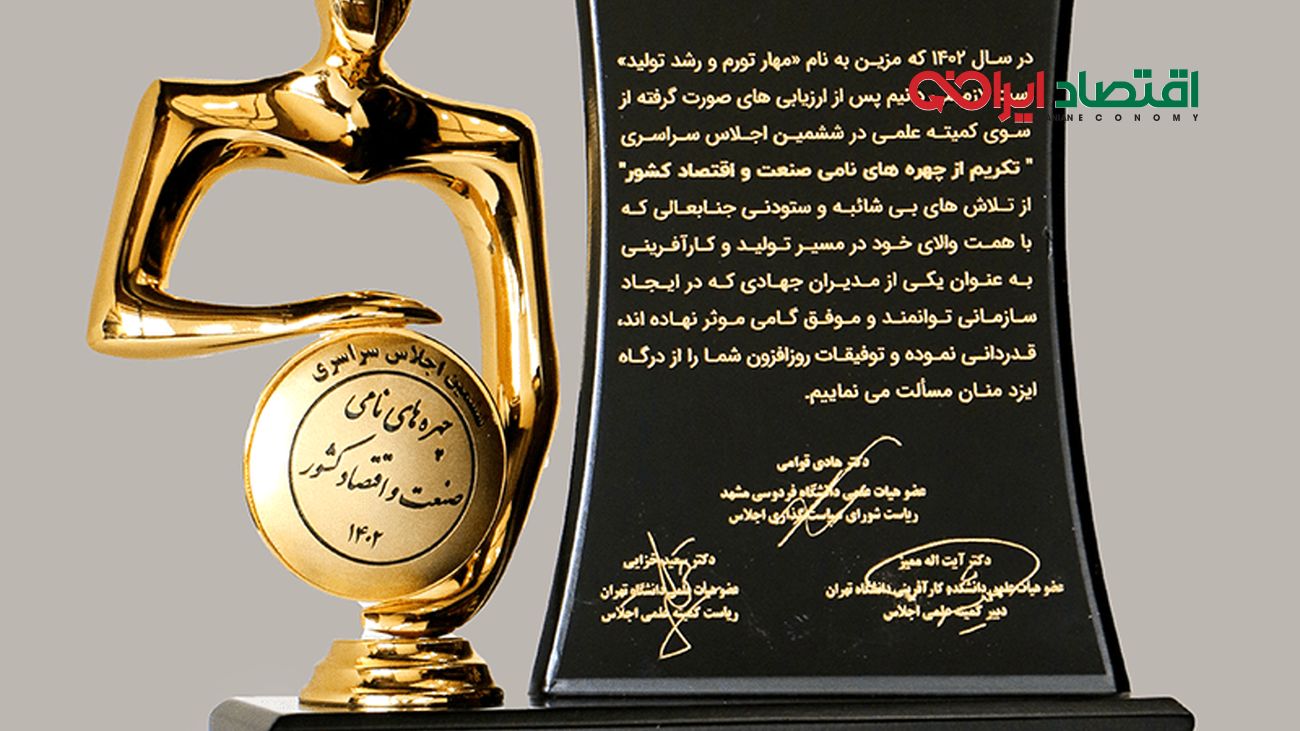 اقتصاد ایرانی
ECONOMY
در سال ۱۴۰۲ که مزین به نام «مهار تورم و رشد تولید»
پس از ارزیابی های صورت گرفته از
سوی کمیته علمی در ششمین اجلاس سراسری
" تکریم از چهره های نامی صنعت و اقتصاد کشور"
از تلاش های بی شائبه و ستودنی جنابعالی که
با همت والای خود در مسیر تولید و کارآفرینی
به عنوان یکی از مدیران جهادی که در ایجاد
سازمانی توانمند و موفق گامی موثر نهاده اند،
قدردانی نموده و توفیقات روزافزون شما را از درگاه
ایزد منان مسألت می نماییم.
دکتر هادی قوامی
عضو هیات علمی دانشگاه فردوسی مشهد
ریاست شورای سیاست گذاری اجلاس
دکتر آیت اله ممیز
عضو هیات علمی دانشکده کارآفرینی دانشگاه تهران
دبیر کمیته علمی اجلاس
دکتر سعید خزایی
عضو هیات علمی دانشگاه تهران
ریاست کمیته علمی اجلاس
ششمین اجلاس سراسری
چهره های نامی
صنعت و اقتصاد کشور
۱۴۰۲